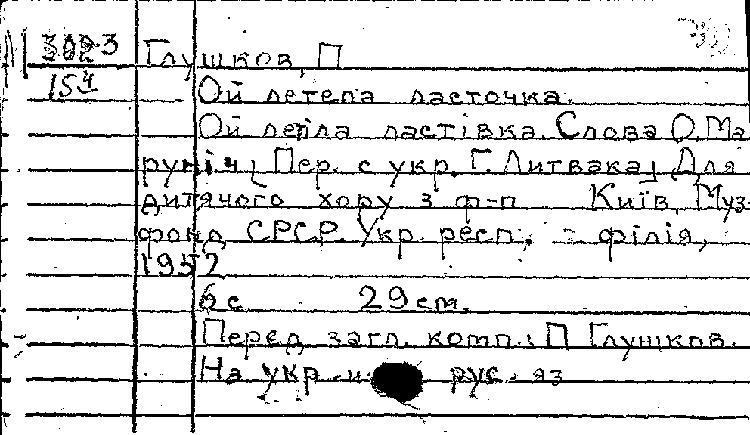 Глушков, П
15ч
Ой летела ласточка.
Ой летіла ластівка. Слова О. Ма
руніч; Пер. с укр. Г. Литвака; Для
дитячого хору з ф-п Київ, Муз-
фонд СРСР. Укр. респ. філія,
1957
6 с 29 см.
Перед загл. комп.: П Глушков.
На укр. и рус. яз